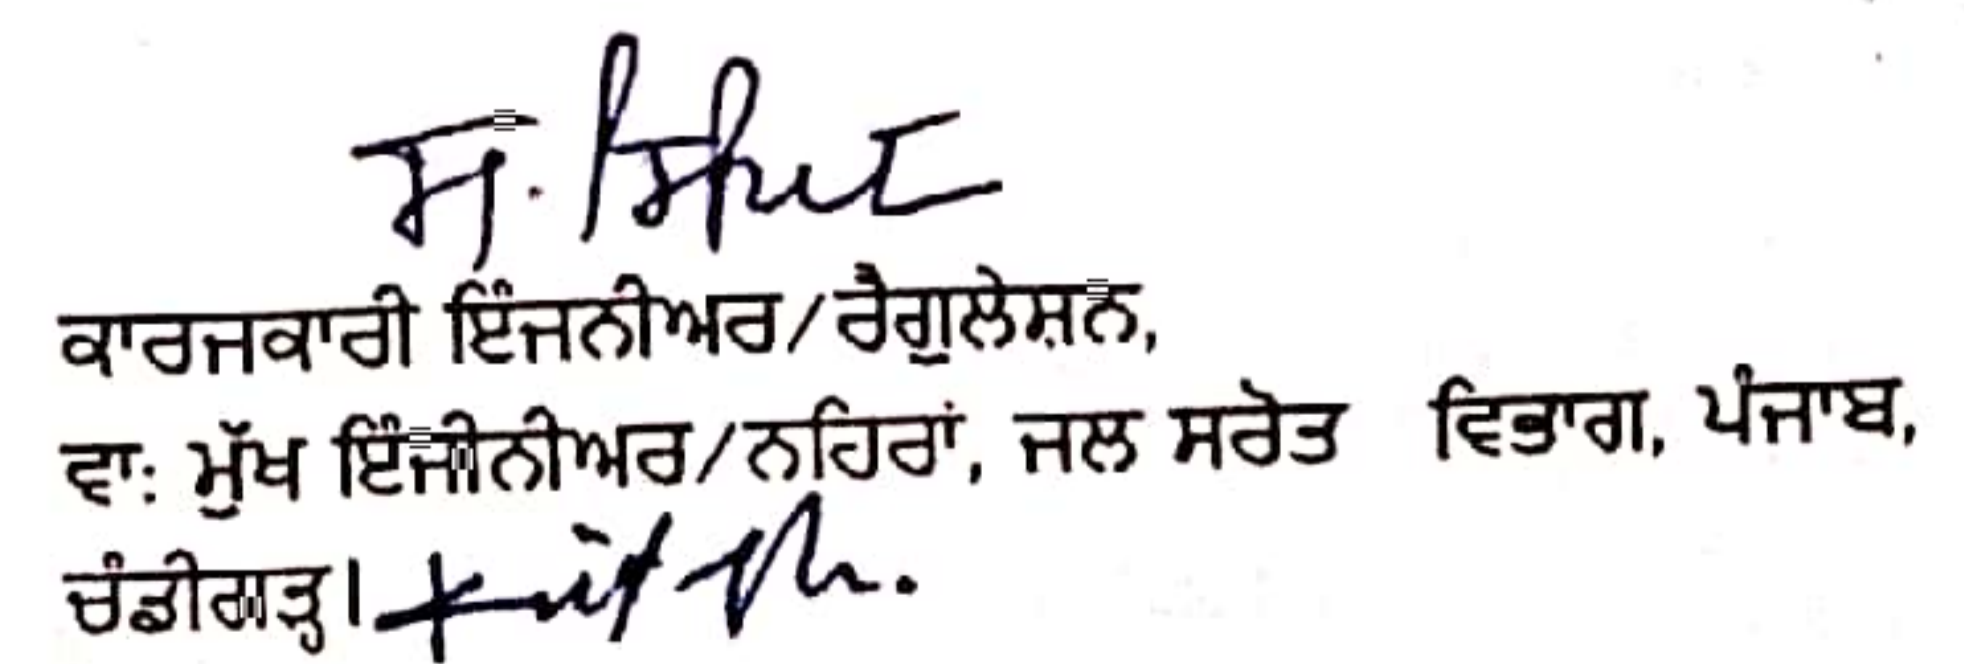 ਕਾਰਜਕਾਰੀ ਇੰਜਨੀਅਰ/ਰੈਗੂਲੇਸ਼ਨ,
ਵਾ: ਮੁੱਖ ਇੰਜੀਨੀਅਰ/ਨਹਿਰਾਂ, ਜਲ ਸਰੋਤ ਵਿਭਾਗ, ਪੰਜਾਬ,
ਚੰਡੀਗੜ੍ਹ।